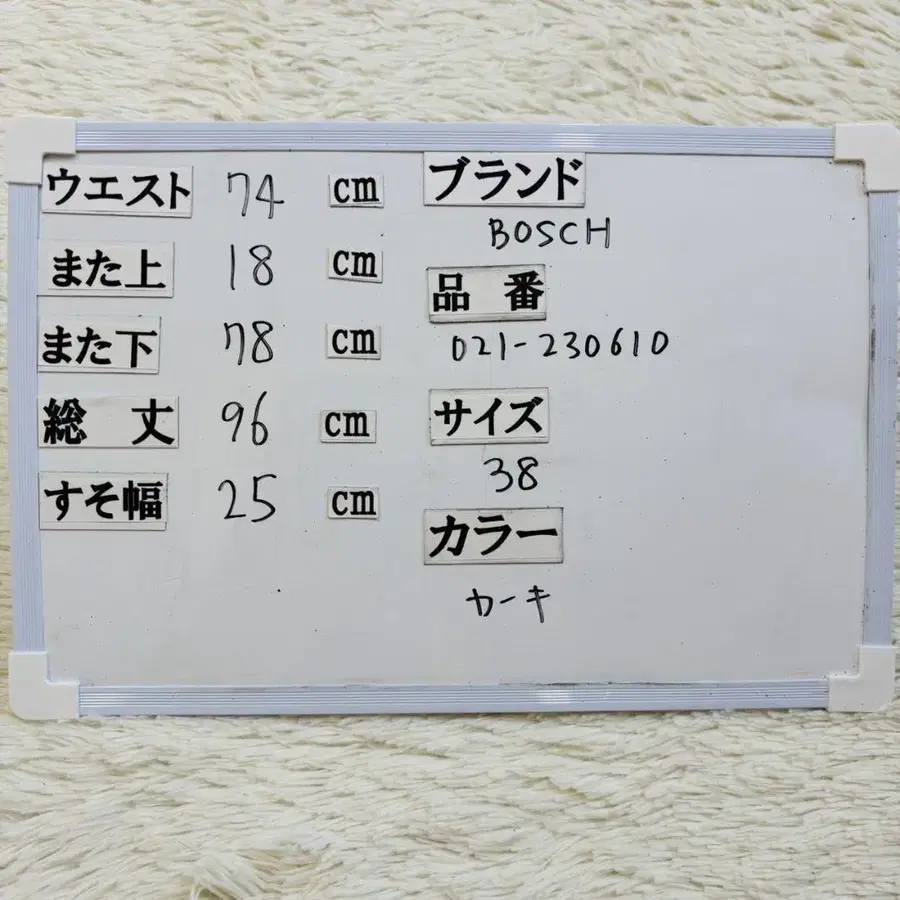 ウエスト 74 cm
また上 18 cm
また下 78 cm
総丈 96 cm
すそ幅 25 cm
ブランド
BOSCH
品番
021-230610
サイズ
38
カラー
カーキ